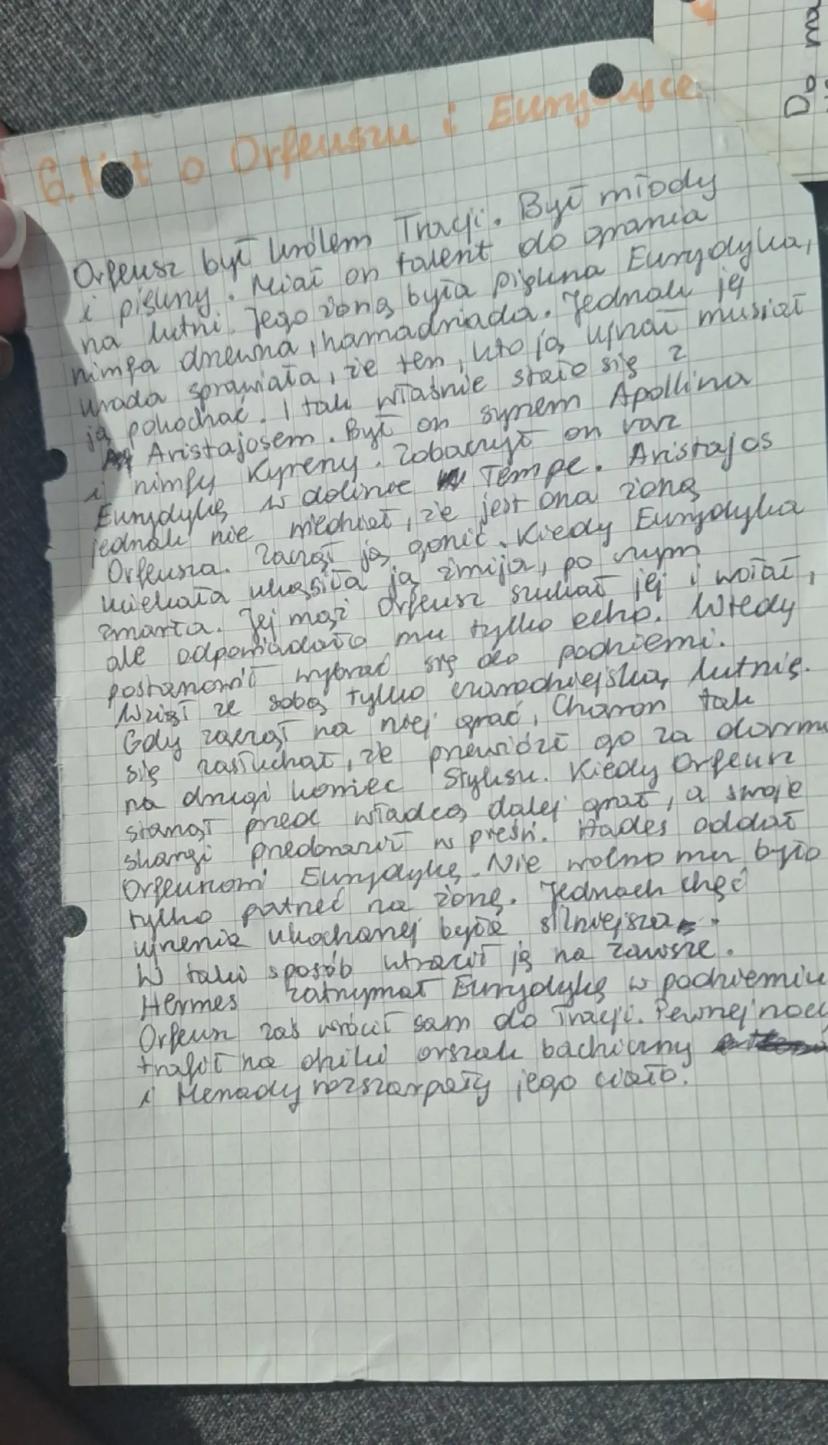 6. Mit o Orfeuszu i Eurydyce.
Orfeusz był królem Tracji. Był młody
i piękny. Miał on talent do grania
na lutni. Jego żoną była piękna Eurydyka,
nimfa drzewna, hamadriada. Jednak jej
uroda sprawiała, że ten, kto ją ujrzał musiał
ją pokochać. I tak właśnie stało się z
Aristajosem. Był on synem Apollina
i nimfy Kyreny. Zobaczył on raz
Eurydykę w dolinie Tempe. Aristajos
jednak nie wiedział, że jest ona żoną
Orfeusza. Zaczął ją gonić. Kiedy Eurydyka
uciekała ukąsiła ją żmija, po czym
zmarła. Jej mąż Orfeusz szukał jej i wołał,
ale odpowiadało mu tylko echo. Wtedy
postanowił wybrać się do podziemi.
Wziął ze sobą tylko czarodziejską lutnię.
Gdy zaczął na niej grać, Charon tak
się zasłuchał, że przewiózł go za darmo
na drugi koniec Styksu. Kiedy Orfeusz
stanął przed władcą dalej grał, a swoje
skargi przedstawił w pieśni. Hades oddał
Orfeuszowi Eurydykę. Nie wolno mu było
tylko patrzeć na żonę. Jednach chęć
ujrzenia ukochanej była silniejsza.
W taki sposób utracił ją na zawsze.
Hermes zatrzymał Eurydykę w podziemiu
Orfeusz zaś wrócił sam do Tracji. Pewnej nocy
trafił na dziki orszak bachiczny
i Menady rozszarpały jego ciało.
Do